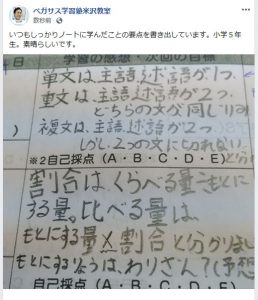 ペガサス学習塾米沢教室
数秒前
いつもしっかりノートに学んだことの要点を書き出しています。小学5年生。素晴らしいです。
日 学習の感想・次回の目標
単文は、主語述語が1つ。
重文は、主語述語が2つ、
どちらの文が同じ
複文は、主語述語が2つ。
しかし、2つの文に切れない。
※2自己採点(A・B・C・D・E)と分
割合は、くらべる量÷もとに
する量。比べる量は、
もとにする量×割合と分かりまし
もとにする りょうは、わりざん?(予想
自己採点(A・B・C・D・E)